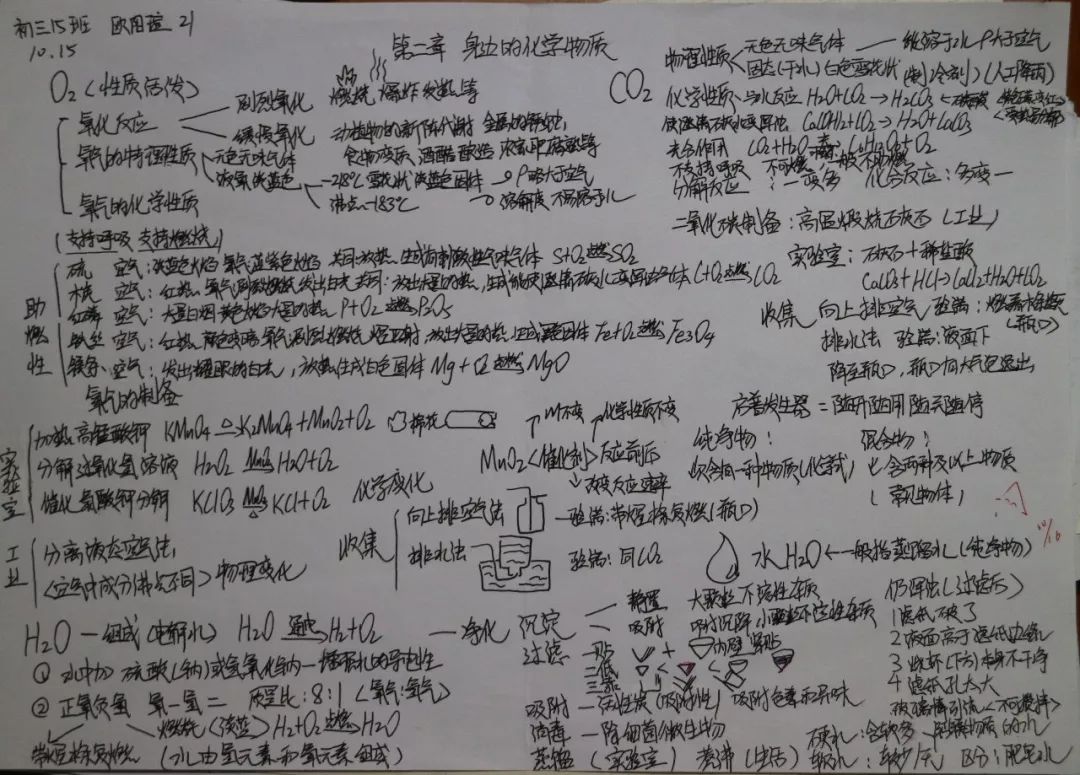 初三15班 欧阳瑄 21
10.15
第二章 身边的化学物质
O₂ (性质活泼)
氧化反应 剧烈氧化 燃烧 爆炸 发热等
缓慢氧化 动植物的新陈代谢 金属的锈蚀,
食物变质 酒醋酿造 农家肥腐熟等
氧气的物理性质 无色无味气体
液氧淡蓝色 -218℃ 雪花状淡蓝色固体 ρ略大于空气
沸点-183℃ 溶解度 不易溶于水
氧气的化学性质
(支持呼吸 支持燃烧)
助燃性
硫 空气:淡蓝色火焰 氧气蓝紫色火焰 共同:放热,生成有刺激性气味气体 S+O₂ 点燃 SO₂
木炭 空气:红热 氧气剧烈燃烧 发出白光 共同:放出大量的热,生成能使澄清石灰水变浑浊气体 C+O₂ 点燃 CO₂
红磷 空气:大量白烟 黄色火焰 大量的热 P+O₂ 点燃 P₂O₅
铁丝 空气:红热 氧气剧烈燃烧 火星四射 放出大量的热 生成黑色固体 Fe+O₂ 点燃 Fe₃O₄
镁条 空气:发出耀眼的白光,放热生成白色固体 Mg+O₂ 点燃 MgO
氧气的制备
实验室
加热高锰酸钾 KMnO₄ △ K₂MnO₄+MnO₂+O₂ 棉花
分解过氧化氢溶液 H₂O₂ MnO₂ H₂O+O₂
催化氯酸钾分解 KClO₃ MnO₂ △ KCl+O₂ 化学变化
MnO₂<催化剂>反应前后 m不变 化学性质不变
改变反应速率
工业
分离液态空气法,
(空气中成分沸点不同) 物理变化
收集
向上排空气法 验满:带火星木条复燃(瓶口)
排水法 验满:同CO₂
CO₂
物理性质 无色无味气体 能溶于水 ρ大于空气
固态(干冰)白色雪花状 (制冷剂)(人工降雨)
化学性质 与水反应 H₂O+CO₂→H₂CO₃
使澄清石灰水变浑浊 Ca(OH)₂+CO₂→H₂O+CaCO₃
光合作用 CO₂+H₂O→C₆H₁₂O₆+O₂
不支持呼吸 不可燃 一般不助燃
分解反应:一变多 化合反应:多变一
二氧化碳制备:高温煅烧石灰石(工业)
实验室:石灰石+稀盐酸
CaCO₃+HCl→CaCl₂+H₂O+CO₂
收集 向上排空气 验满:燃着木条熄灭(瓶口)
排水法 验满:液面下
降至瓶口,瓶口有大气泡逸出
启普发生器=随开随用 随关随停
纯净物: 混合物:
仅含有一种物质(化学式) 含两种及以上物质
(常见物体)
10/16
水 H₂O←一般指蒸馏水(纯净物)
H₂O—组成(电解水) H₂O 通电 H₂+O₂
① 水中加硫酸(钠)或氢氧化钠—增强水的导电性
② 正氧负氢 氧一氢二 质量比:8:1(氧气:氢气)
燃烧(淡蓝) H₂+O₂ 点燃 H₂O
带火星木条复燃 (水由氢元素和氧元素组成)
净化 沉淀 静置 大颗粒不溶性杂质
吸附 吸附沉降 小颗粒不溶性杂质
过滤 一贴 内壁 紧贴
二低
三靠
吸附—活性炭(吸附性) 吸附色素和异味
消毒—除细菌微生物
蒸馏 (实验室) 煮沸 (生活)
仍浑浊(过滤后)
1 滤纸破了
2 液面高于滤纸边缘
3 烧杯(下方)本身不干净
4 滤纸孔太大
玻璃棒引流(不可搅拌)
硬水:含较多可溶性物质的水
软水:较少/无 区分:肥皂水